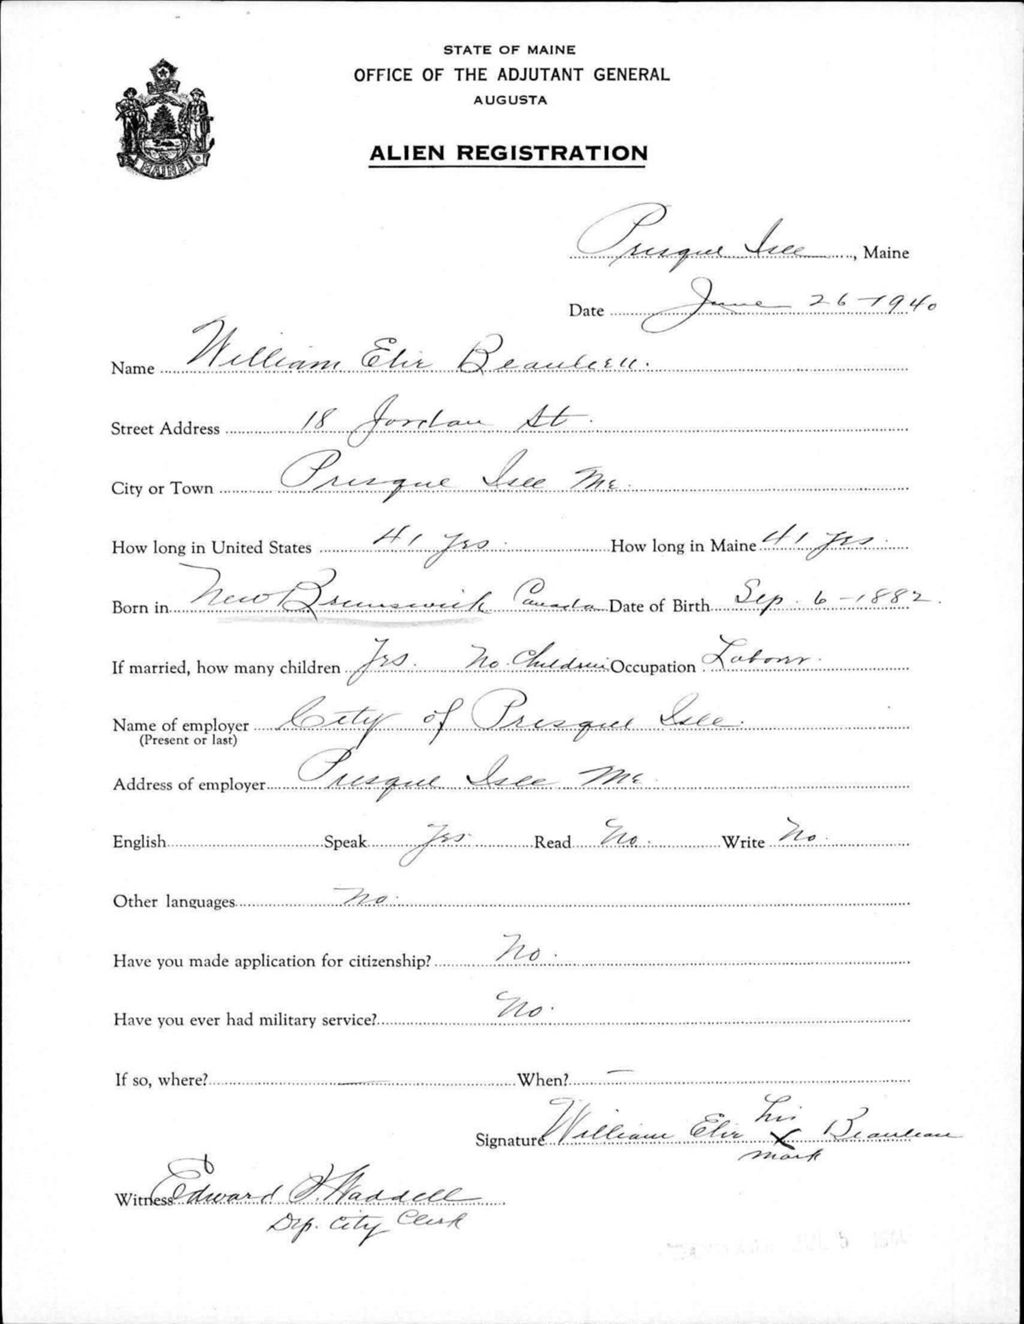 STATE OF MAINE
OFFICE OF THE ADJUTANT GENERAL
AUGUSTA
MAINE
ALIEN REGISTRATION
Presque Isle, Maine
Date June 26-1940
Name William Elir Beaulieu.
Street Address 18 Jordan St.
City or Town Presque Isle Me.
How long in United States 41 yrs. How long in Maine 41 yrs.
Born in New Brunswick Canada Date of Birth Sep. 6-1882.
If married, how many children Yes. No Children Occupation Labour.
Name of employer City of Presque Isle.
(Present or last)
Address of employer Presque Isle Me.
English Speak Yes. Read No. Write No.
Other languages No.
Have you made application for citizenship? No.
Have you ever had military service? No.
If so, where? — When? —
his
Signature William Elir X Beaulieau
mark
Witness Edward Waddell
Dep. City Clerk